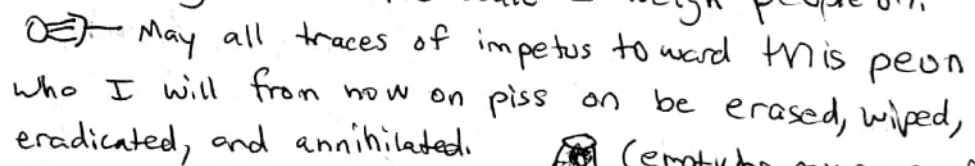 I weigh people on.
May all traces of impetus toward this peon
who I will from now on piss on be erased, wiped,
eradicated, and annihilated. (empty